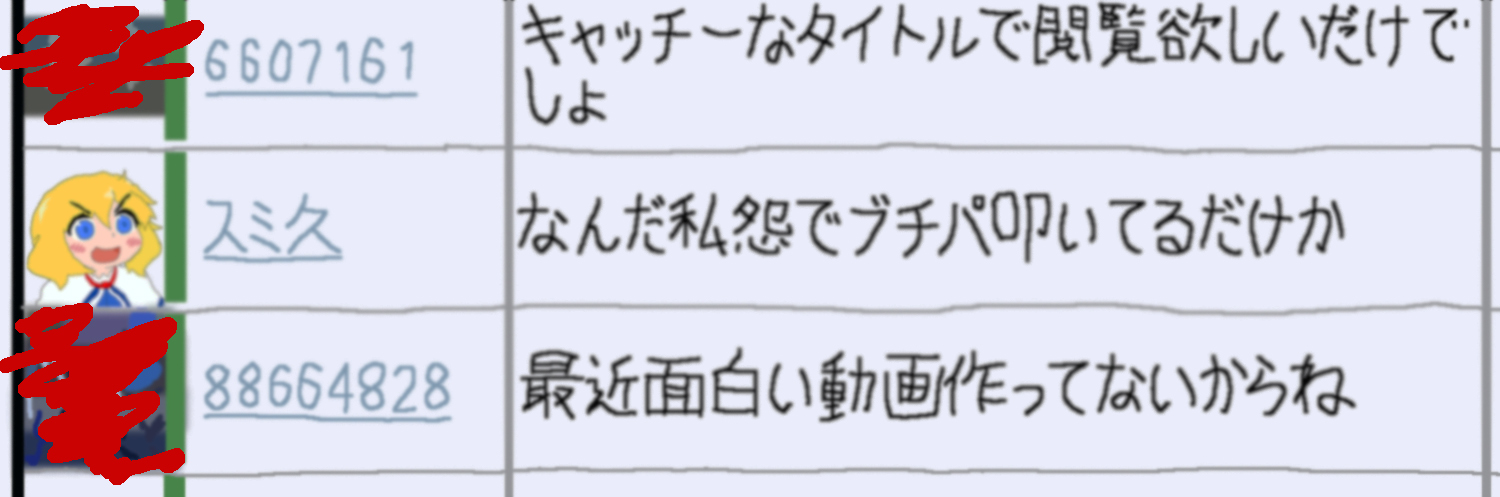 6607161
キャッチーなタイトルで閲覧欲しいだけで
しょ
スミ久
なんだ私怨でブチパ叩いてるだけか
88664828
最近面白い動画作ってないからね